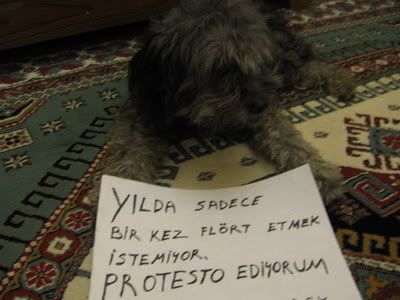 YILDA SADECE
BİR KEZ FLÖRT ETMEK
İSTEMİYOR.
PROTESTO EDİYORUM